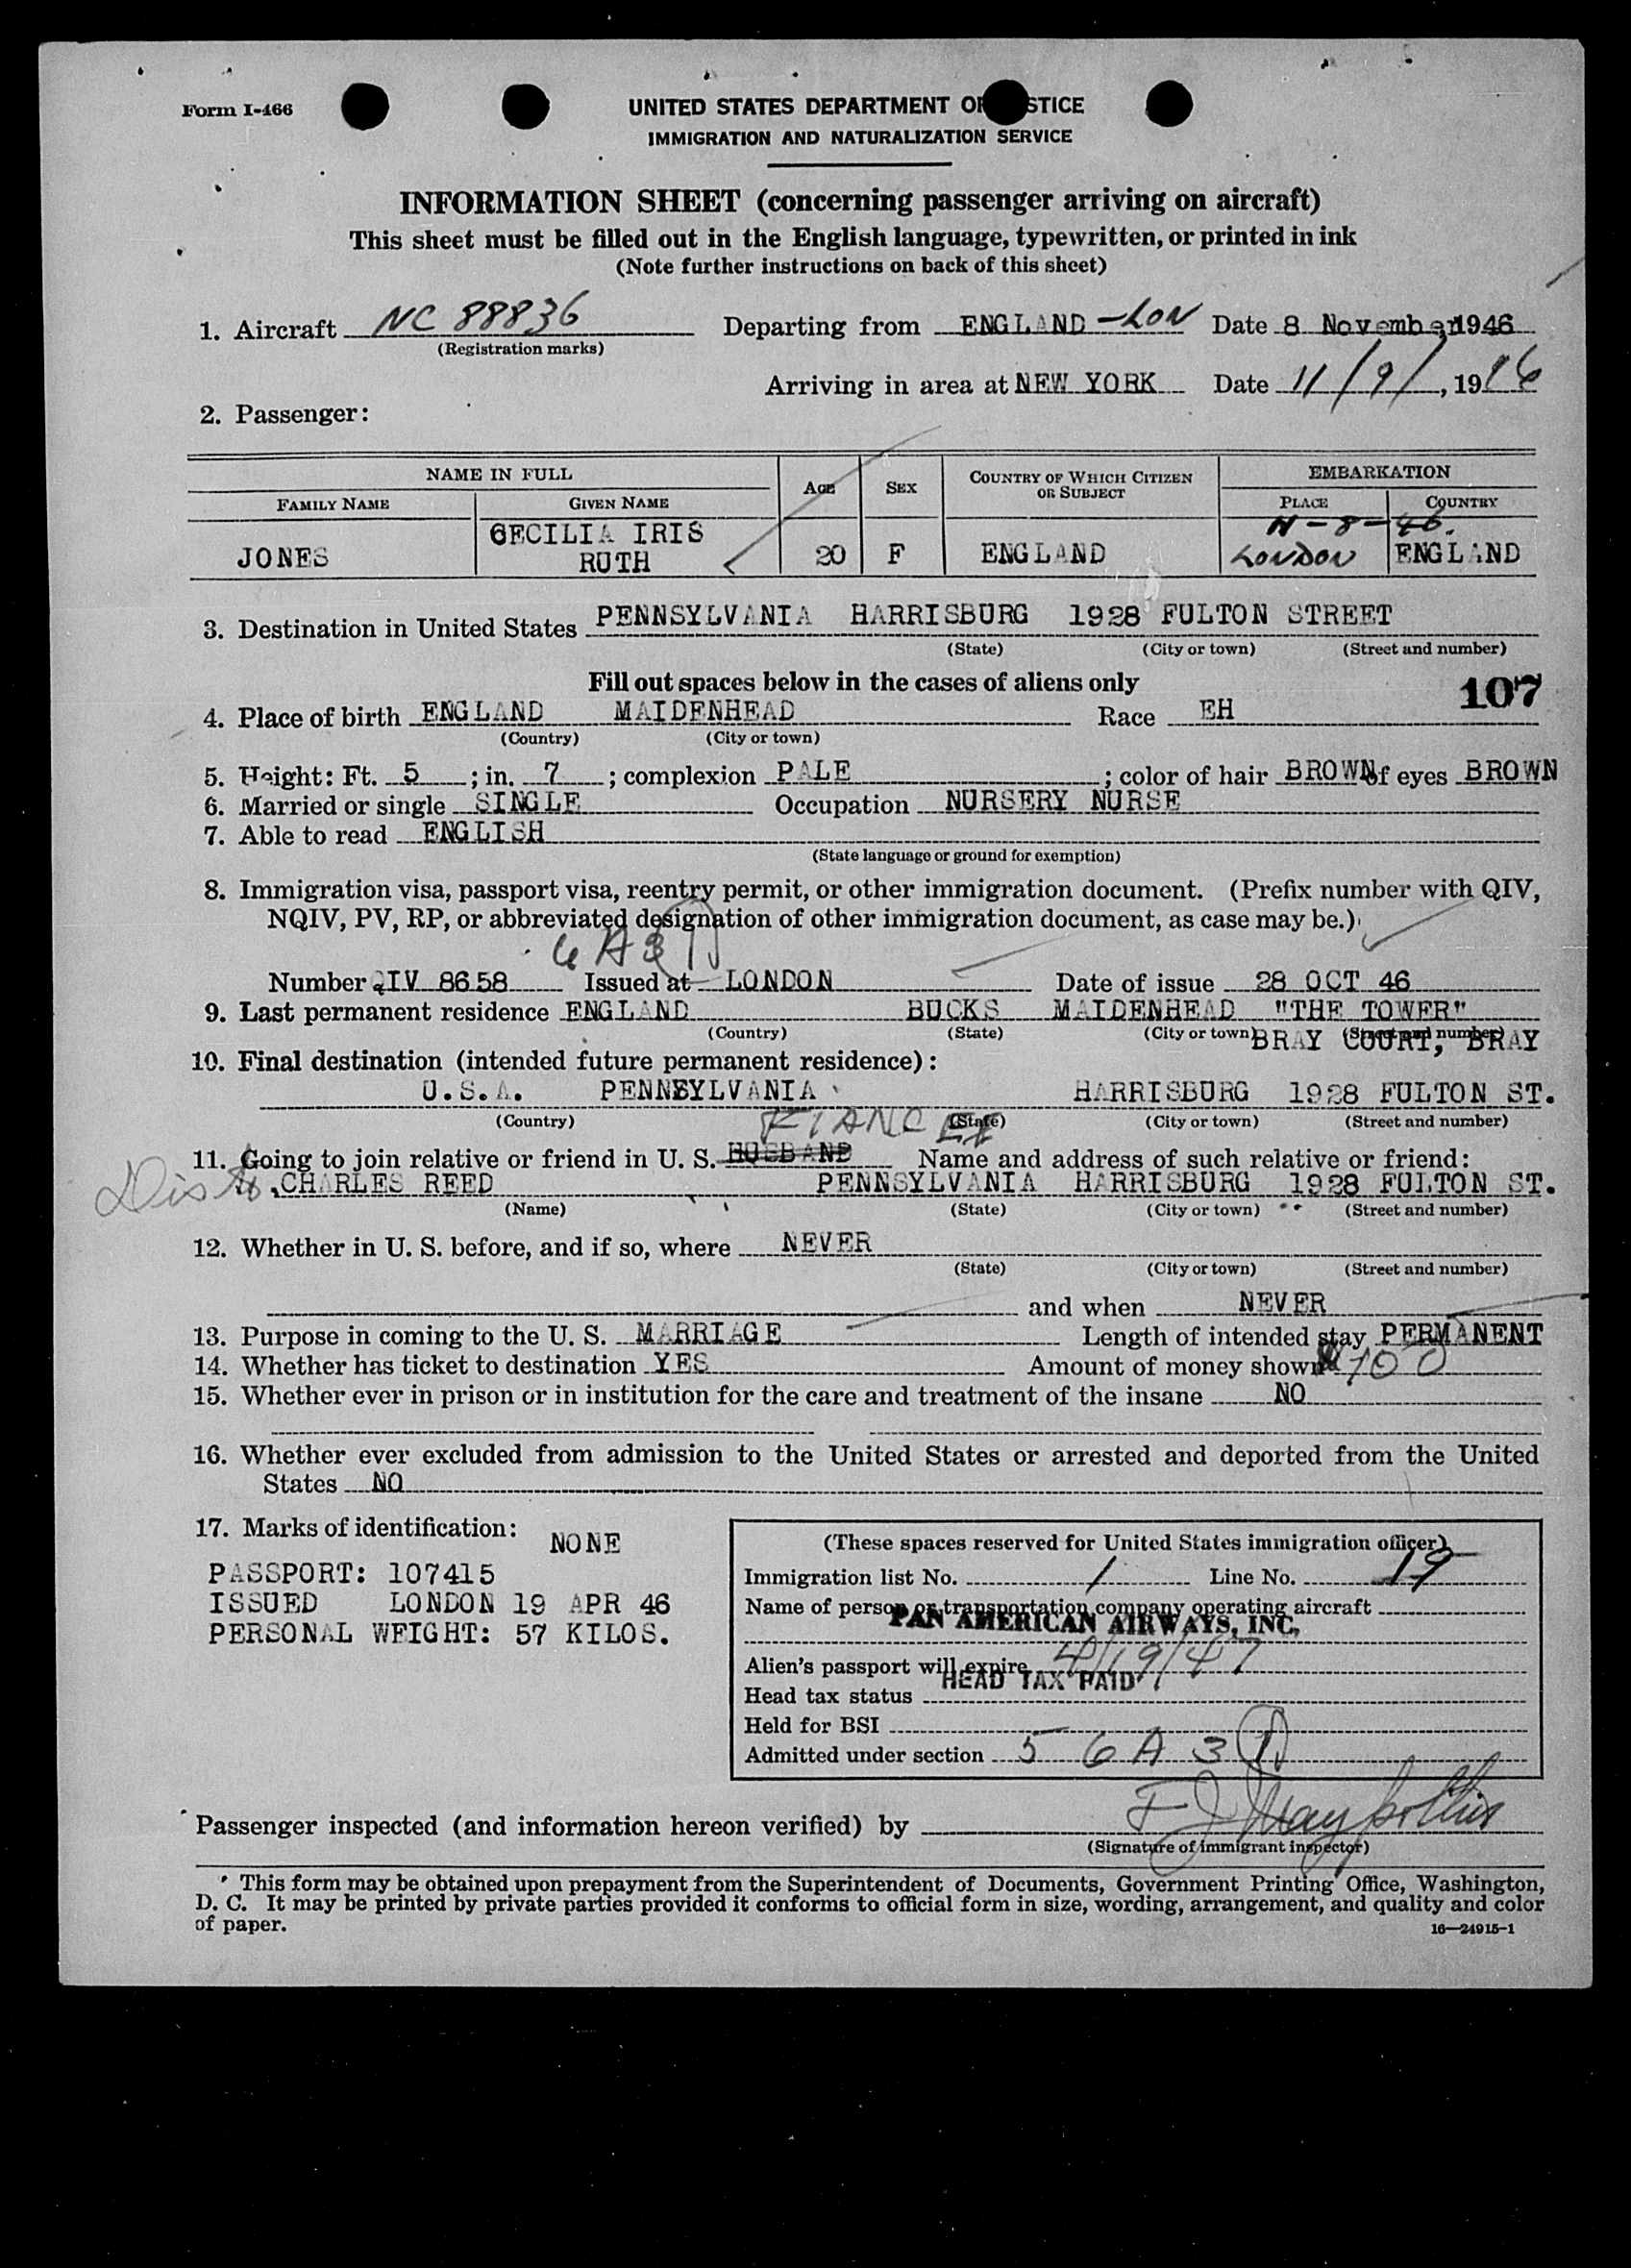 Form I-466
UNITED STATES DEPARTMENT OF STICE
IMMIGRATION AND NATURALIZATION SERVICE
INFORMATION SHEET (concerning passenger arriving on aircraft)
This sheet must be filled out in the English language, typewritten, or printed in ink
(Note further instructions on back of this sheet)
1. Aircraft NC 88836 Departing from ENGLAND - LON Date 8 November 1946
(Registration marks)
Arriving in area at NEW YORK Date 11/9/, 1946
2. Passenger:
NAME IN FULL AGE SEX COUNTRY OF WHICH CITIZEN OR SUBJECT EMBARKATION
FAMILY NAME GIVEN NAME PLACE COUNTRY
11-8-46.
CECILIA IRIS
JONES RUTH 20 F ENGLAND LONDON ENGLAND
3. Destination in United States PENNSYLVANIA HARRISBURG 1928 FULTON STREET
(State) (City or town) (Street and number)
Fill out spaces below in the cases of aliens only
107
4. Place of birth ENGLAND MAIDENHEAD Race EH
(Country) (City or town)
5. Height: Ft. 5; in. 7; complexion PALE; color of hair BROWN of eyes BROWN
6. Married or single SINGLE Occupation NURSERY NURSE
7. Able to read ENGLISH
(State language or ground for exemption)
8. Immigration visa, passport visa, reentry permit, or other immigration document. (Prefix number with QIV,
NQIV, PV, RP, or abbreviated designation of other immigration document, as case may be.)
6 A 3 (1)
Number QIV 8658 Issued at LONDON Date of issue 28 OCT 46
9. Last permanent residence ENGLAND BUCKS MAIDENHEAD "THE TOWER"
(Country) (State) (City or town) (Street and number) BRAY COURT, BRAY
10. Final destination (intended future permanent residence):
U.S.A. PENNSYLVANIA HARRISBURG 1928 FULTON ST.
(Country) (State) (City or town) (Street and number)
FIANCEE
11. Going to join relative or friend in U. S. HUSBAND Name and address of such relative or friend:
CHARLES REED PENNSYLVANIA HARRISBURG 1928 FULTON ST.
(Name) (State) (City or town) (Street and number)
12. Whether in U. S. before, and if so, where NEVER
(State) (City or town) (Street and number)
and when NEVER
13. Purpose in coming to the U. S. MARRIAGE Length of intended stay PERMANENT
14. Whether has ticket to destination YES Amount of money shown $100
15. Whether ever in prison or in institution for the care and treatment of the insane NO
16. Whether ever excluded from admission to the United States or arrested and deported from the United
States NO
17. Marks of identification: NONE
PASSPORT: 107415
ISSUED LONDON 19 APR 46
PERSONAL WEIGHT: 57 KILOS.
(These spaces reserved for United States immigration officer)
Immigration list No. 1 Line No. 19
Name of person or transportation company operating aircraft
PAN AMERICAN AIRWAYS, INC.
Alien's passport will expire 4/19/47
HEAD TAX PAID
Head tax status
Held for BSI
Admitted under section 5 6 A 3 (1)
Passenger inspected (and information hereon verified) by
(Signature of immigrant inspector)
This form may be obtained upon prepayment from the Superintendent of Documents, Government Printing Office, Washington,
D. C. It may be printed by private parties provided it conforms to official form in size, wording, arrangement, and quality and color
of paper.
16—24915-1